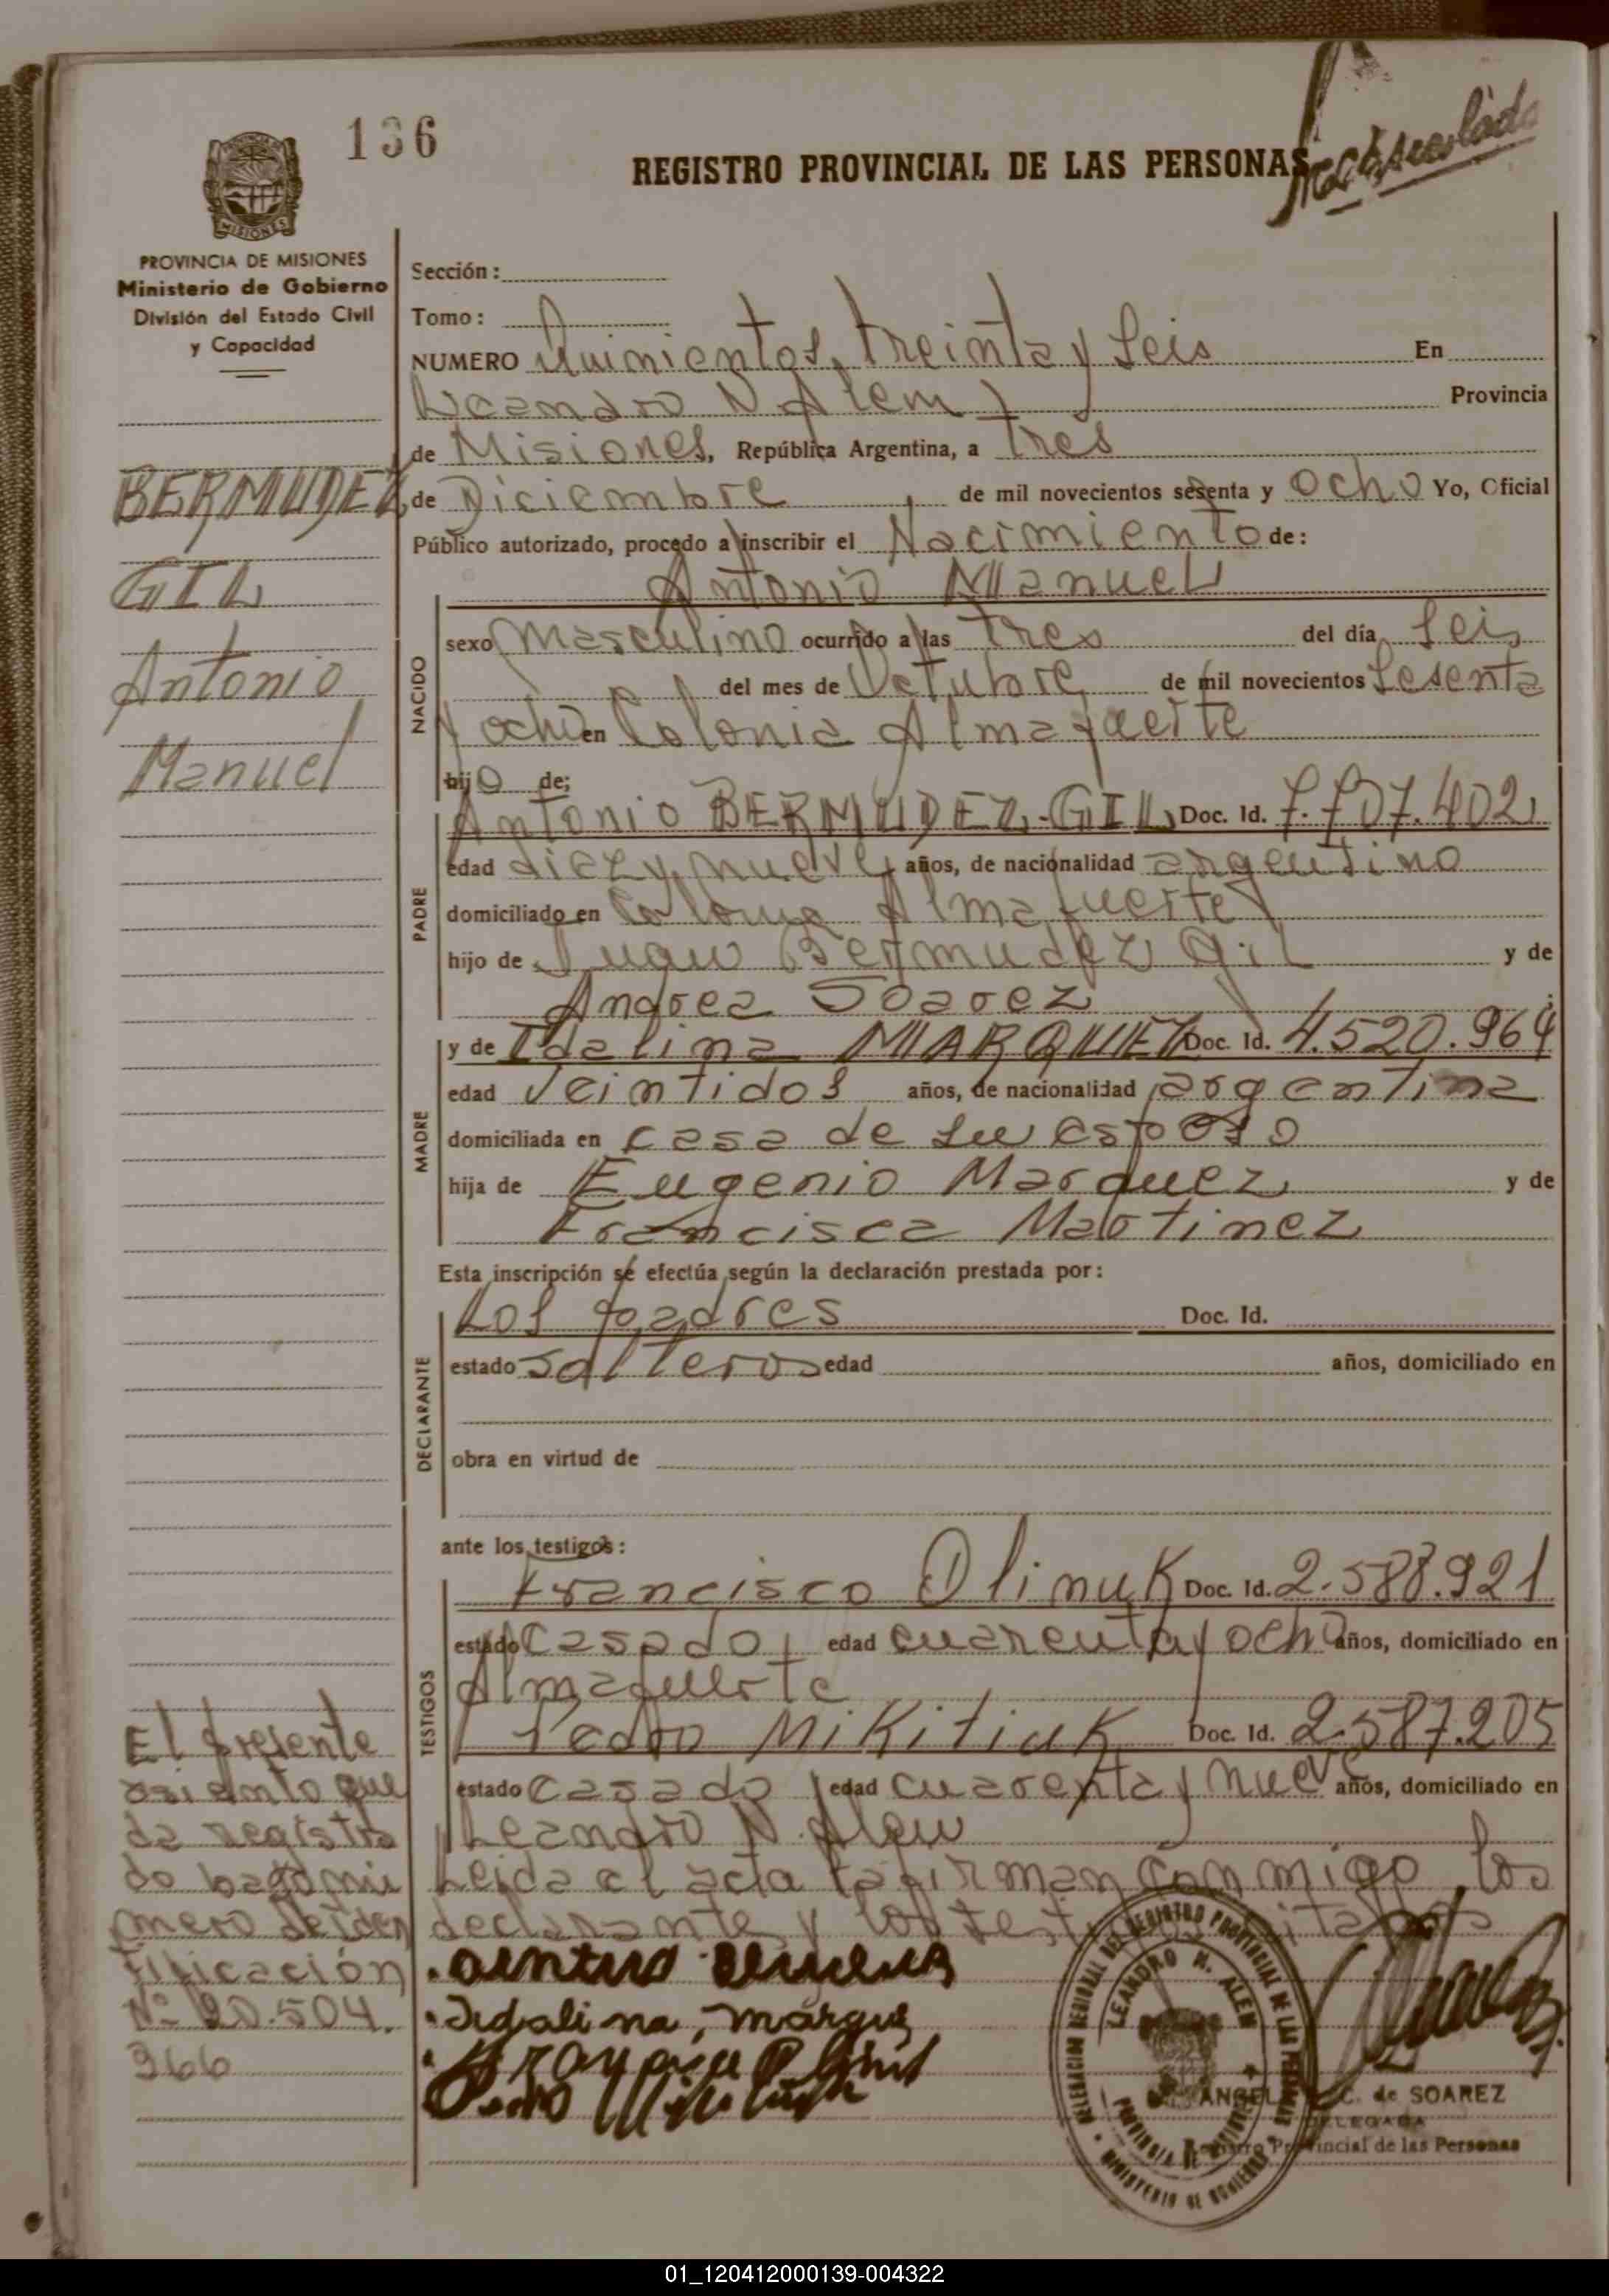 136
REGISTRO PROVINCIAL DE LAS PERSONAS
MISIONES
PROVINCIA DE MISIONES
Ministerio de Gobierno
División del Estado Civil
y Capacidad
BERMUDEZ
GIL
Antonio
Manuel
Sección:
Tomo:
NUMERO Quinientos treinta y seis En
Leandro N. Alem Provincia
de Misiones, República Argentina, a tres
de Diciembre de mil novecientos sesenta y ocho Yo, Oficial
Público autorizado, procedo a inscribir el Nacimiento de:
Antonio Manuel
NACIDO
sexo masculino ocurrido a las tres del día seis
del mes de Octubre de mil novecientos sesenta
y ocho en Colonia Almafuerte
hijo de;
PADRE
Antonio BERMUDEZ-GIL Doc. Id. 7.707.402
edad diez y nueve años, de nacionalidad argentino
domiciliado en Colonia Almafuerte
hijo de Juan Bermudez Gil y de
Andrea Soarez
MADRE
y de Idalina MARQUEZ Doc. Id. 4.520.964
edad veintidos años, de nacionalidad argentina
domiciliada en casa de su esposo
hija de Eugenio Marquez y de
Francisca Martinez
Esta inscripción se efectúa según la declaración prestada por:
DECLARANTE
Los padres Doc. Id.
estado solteros edad años, domiciliado en
obra en virtud de
ante los testigos:
TESTIGOS
Francisco Olinuk Doc. Id. 2.588.921
estado casado edad cuarenta y ocho años, domiciliado en
Almafuerte
Pedro Mikitiuk Doc. Id. 2.587.205
estado casado edad cuarenta y nueve años, domiciliado en
Leandro N. Alem
Leida el acta la firman conmigo los
declarante y los testigos citados
Idalina, marque
El presente
asiento que
da registra
do bajo nu
mero de iden
tificación
Nº 20.504.
966
DELEGACION REGIONAL DEL REGISTRO PROVINCIAL DE LAS PERSONAS
LEANDRO N. ALEM
PROVINCIA DE MISIONES
MINISTERIO DE GOBIERNO
C. de SOAREZ
DELEGADA
Registro Provincial de las Personas
01_120412000139-004322